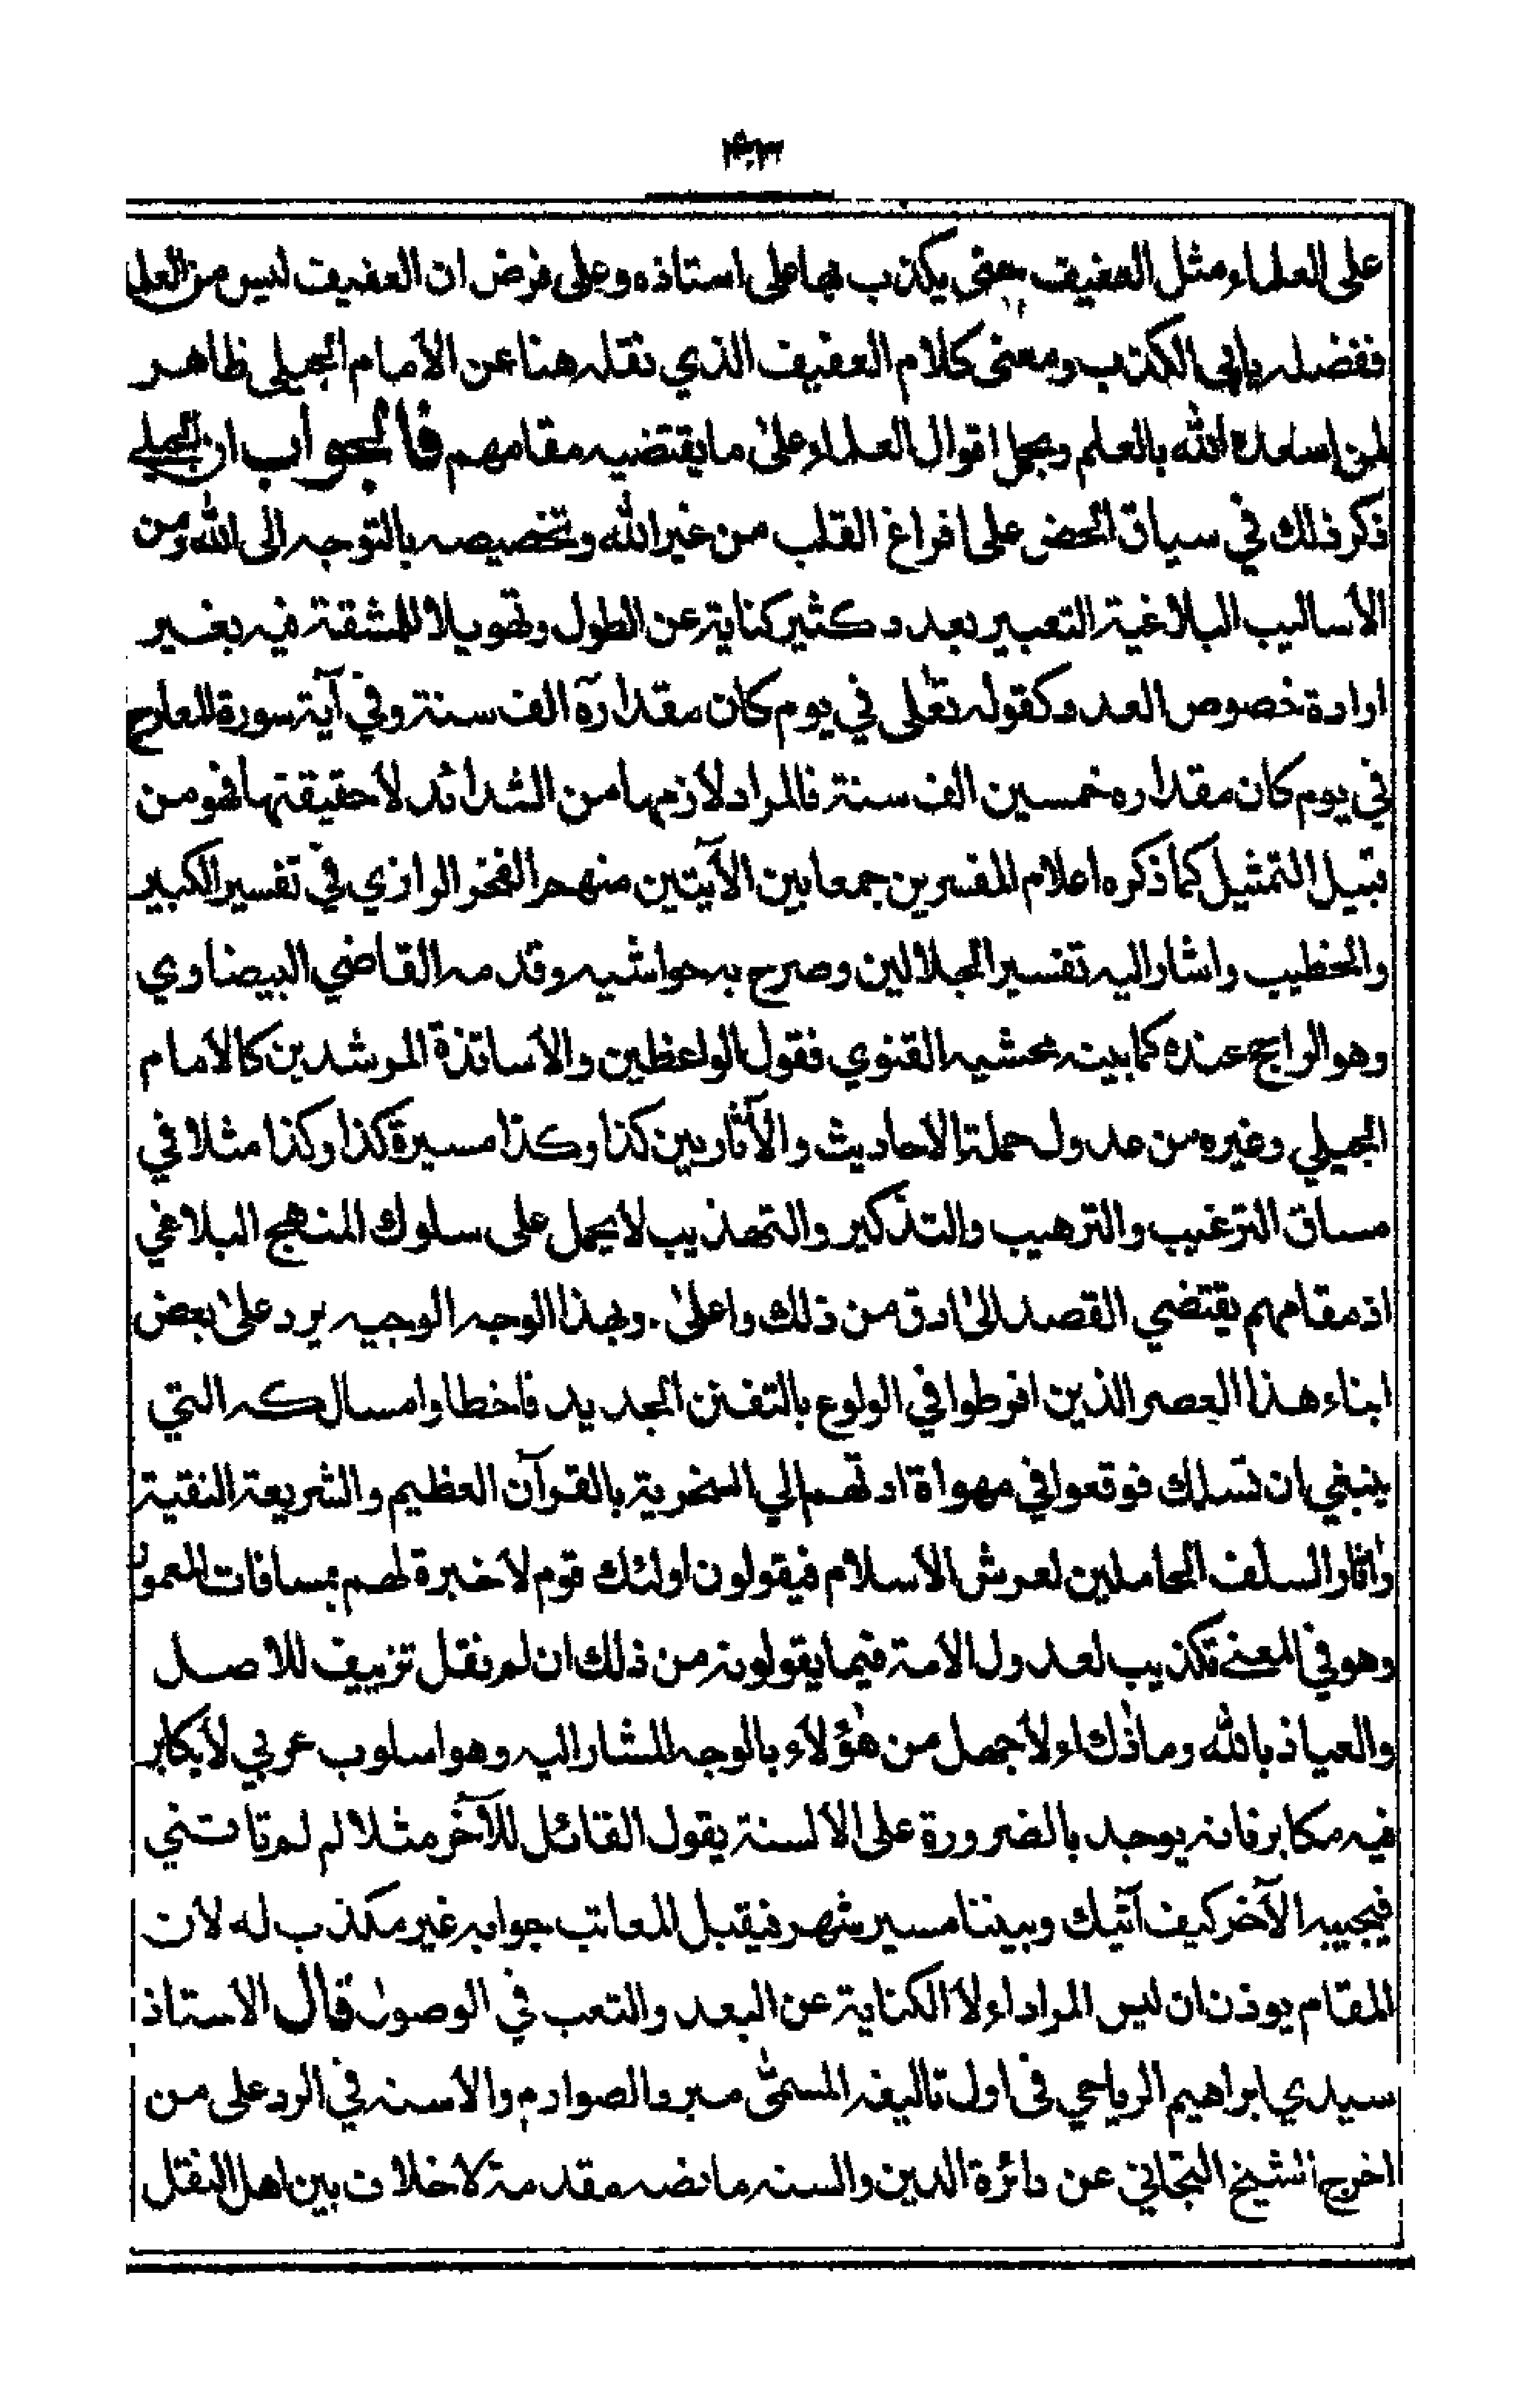 ٤٠٣
على العلماء مثل العفيف يعنى يكذب بها على استاذه وعلى فرض ان العفيف ليس من العلما
ففضله يابى الكذب ومعنى كلام العفيف الذي نقله هنا عن الأمام الجيلى ظاهر
لمن اسعده الله بالعلم وحمل اقوال العلماء على ما يقتضيه مقامهم فالجواب ان الجيلي
ذكر ذلك في سياق الحض على افراغ القلب من غير الله وتخصيصه بالتوجه الى الله ومن
الأساليب البلاغية التعبير بعدد كثير كناية عن الطول وتهويلا للمشقة فيه بغير
ارادة خصوص العدد كقوله تعالى في يوم كان مقداره الف سنة وفي آية سورة المعارج
في يوم كان مقداره خمسين الف سنة فالمراد لازمها من الشدائد لا حقيقتها فهو من
قبيل التمثيل كما ذكره اعلام المفسرين جمعا بين الآيتين منهم الفخر الرازي في تفسير الكبير
والخطيب واشار اليه تفسير الجلالين وصرح به حواشيه وقدمه القاضي البيضاوي
وهو الراجح عنده كما بينه محشيه القنوي فقول الواعظين والأساتذة المرشدين كالأمام
الجيلي وغيره من عدول حملة الاحاديث والآثار بين كذا وكذا مسيرة كذا وكذا مثلا في
مساق الترغيب والترهيب والتذكير والتهذيب لا يحمل على سلوك المنهج البلاغي
اذ مقامهم يقتضي القصد الى ادق من ذلك واعلى . وبهذا الوجه الوجيه يرد على بعض
ابناء هذا العصر الذين افرطوا في الولوع بالتفنن الجديد فاخطاوا مسالكه التي
ينبغي ان تسلك فوقعوا في مهواة ادتهم الي السخرية بالقرآن العظيم والشريعة النقية
واثار السلف الحاملين لعرش الاسلام فيقولون اولئك قوم لا خبرة لهم بمسافات المعمور
وهو في المعنى تكذيب لعدول الامة فيما يقولونه من ذلك ان لم نقل تزييف للاصل
والعياذ بالله وما ذاك الا لجهل من هؤلاء بالوجه المشار اليه وهو اسلوب عربي لا يكابر
فيه مكابر فانه يوجد بالضرورة على الالسنة يقول القائل للآخر مثلا لم لم تاتني
فيجيبه الآخر كيف آتيك وبيننا مسير شهر فيقبل المعاتب جوابه غير مكذب له لان
المقام يوذن ان ليس المراد الا الكناية عن البعد والتعب في الوصول قال الاستاذ
سيدي ابراهيم الرياحي فى اول تاليفه المسمى مبرد الصوارم والاسنه في الرد على من
اخرج الشيخ التجاني عن دائرة الدين والسنه ما نصه مقدمة لا خلاف بين اهل النقل